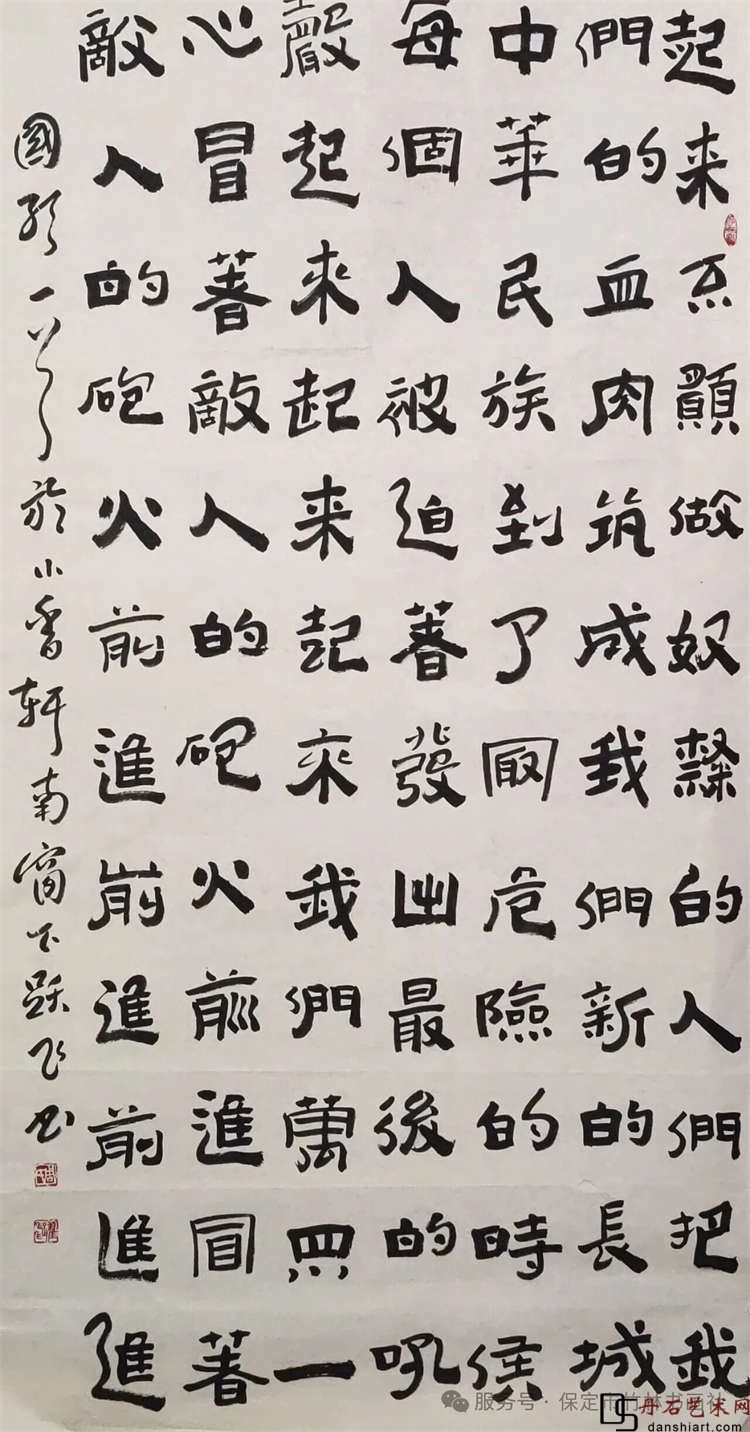 起来不願做奴隸的人們把我
們的血肉筑成我們新的長城
中華民族到了最危險的時候
每個人被迫著發出最後的吼
聲起來起来起來我們萬眾一
心冒著敵人的砲火前進冒著
敵人的砲火前進前進前進進
國歌一首於小香軒南窗下跃飞书
服务号·保定市竹林书画社
丹石艺术网
danshiart.com